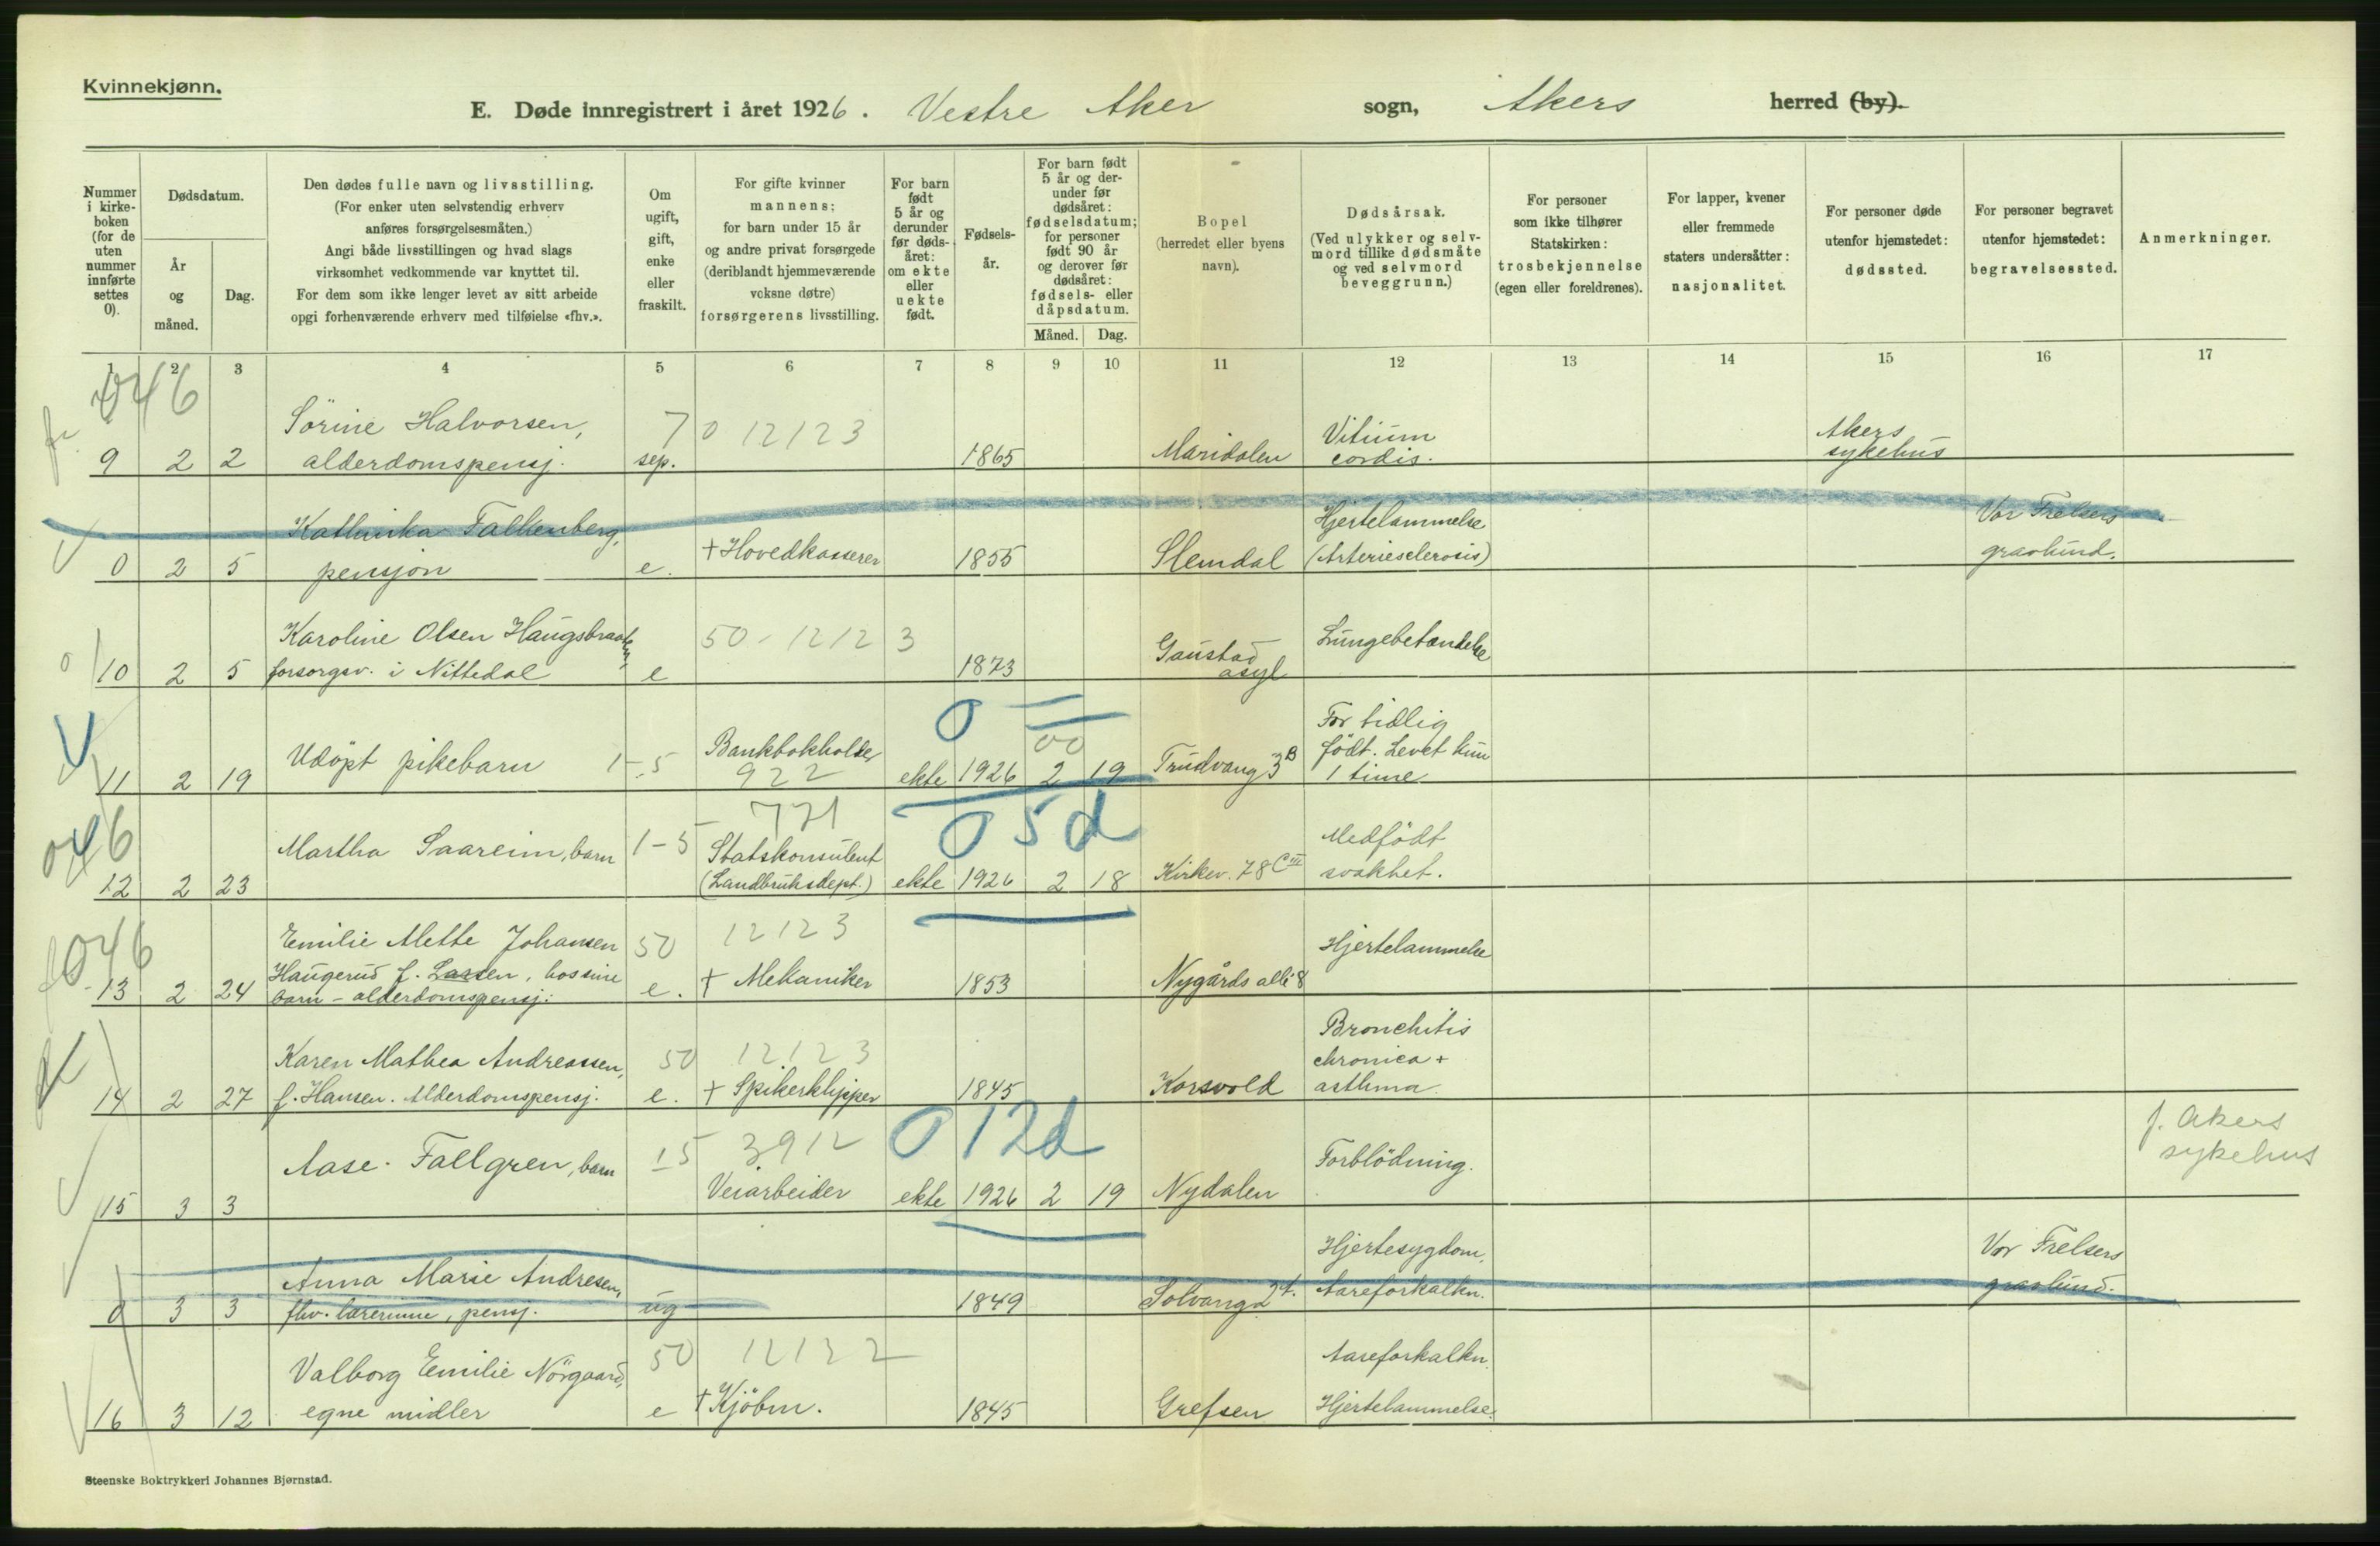 Kvinnekjønn.
E. Døde innregistrert i året 1926. Vestre Aker sogn, Akers herred (by).
Nummer i kirke-boken (for de uten nummer innførte settes 0).
Dødsdatum.
År og måned.
Dag.
Den dødes fulle navn og livsstilling.
(For enker uten selvstendig erhverv
anføres forsørgelsesmåten.)
Angi både livsstillingen og hvad slags
virksomhet vedkommende var knyttet til.
For dem som ikke lenger levet av sitt arbeide
opgi forhenværende erhverv med tilføielse «fhv.».
Om
ugift,
gift,
enke
eller
fraskilt.
For gifte kvinner
mannens;
for barn under 15 år
og andre privat forsørgede
(deriblandt hjemmeværende
voksne døtre)
forsørgerens livsstilling.
For barn
født
5 år og
derunder
før døds-
året:
om ekte
eller
uekte
født.
Fødsels-
år.
For barn født
5 år og der-
under før
dødsåret:
fødselsdatum;
for personer
født 90 år
og derover før
dødsåret:
fødsels- eller
dåpsdatum.
Måned. Dag.
Bopel
(herredet eller byens
navn).
Dødsårsak.
(Ved ulykker og selv-
mord tillike dødsmåte
og ved selvmord
beveggrunn.)
For personer
som ikke tilhører
Statskirken:
trosbekjennelse
(egen eller foreldrenes).
For lapper, kvener
eller fremmede
staters undersåtter:
nasjonalitet.
For personer døde
utenfor hjemstedet:
dødssted.
For personer begravet
utenfor hjemstedet:
begravelsessted.
Anmerkninger.
1 2 3 4 5 6 7 8 9 10 11 12 13 14 15 16 17
046
Sörine Halvorsen, 7 0 12123 Vitium Akers
9 2 2 alderdomspensj. sep. 1865 Maridalen cordis. sykehus
Kathinka Falkenberg, Hjertelammelse Vor Frelsers
0 2 5 pensjon e. + Hovedkasserer 1855 Slemdal (Arteriesclerosis) gravlund.
Karoline Olsen Haugsbraaten, 50 - 12123 Lungebetændelse
10 2 5 forsorgsv. i Nittedal e 1873 Gaustad asyl
0
00
For tidlig
Udöpt pikebarn 1-5 Bankbokholder født. Levet kun
11 2 19 922 ekte 1926 2 19 Trudvang 3B 1 time
046 771 0 5d
Martha Saareim, barn 1-5 Statskonsulent Medfödt
12 2 23 (Landbruksdept.) ekte 1926 2 18 Kirkev. 78 C III svakhet.
046
Emilie Mette Johansen 50 12123 Hjertelammelse
Haugerud f. Larsen, hos sine
13 2 24 barn - alderdomspensj. e. + Mekaniker 1853 Nygårds allé 8
Bronchitis
Karen Mathea Andreassen, 50 12123 chronica +
14 2 27 f. Hansen. Alderdomspensj. e. + Spikerklipper 1845 Korsvold asthma.
0 12d
f. Akers
sykehus
Aase Fallgren, barn 15 3912 Forblödning.
15 3 3 Veiarbeider ekte 1926 2 19 Nydalen
Anna Marie Andresen, Hjertesygdom, Vor Frelsers
0 3 3 fhv. lærerinne, pensj. ug 1849 Solvang 2 Aareforkalkn. gravlund.
Valborg Emilie Nörgaard, 50 12122 Aareforkalkn.
16 3 12 egne midler e + Kjöbm. 1845 Grefsen Hjertelammelse.
Steenske Boktrykkeri Johannes Bjørnstad.